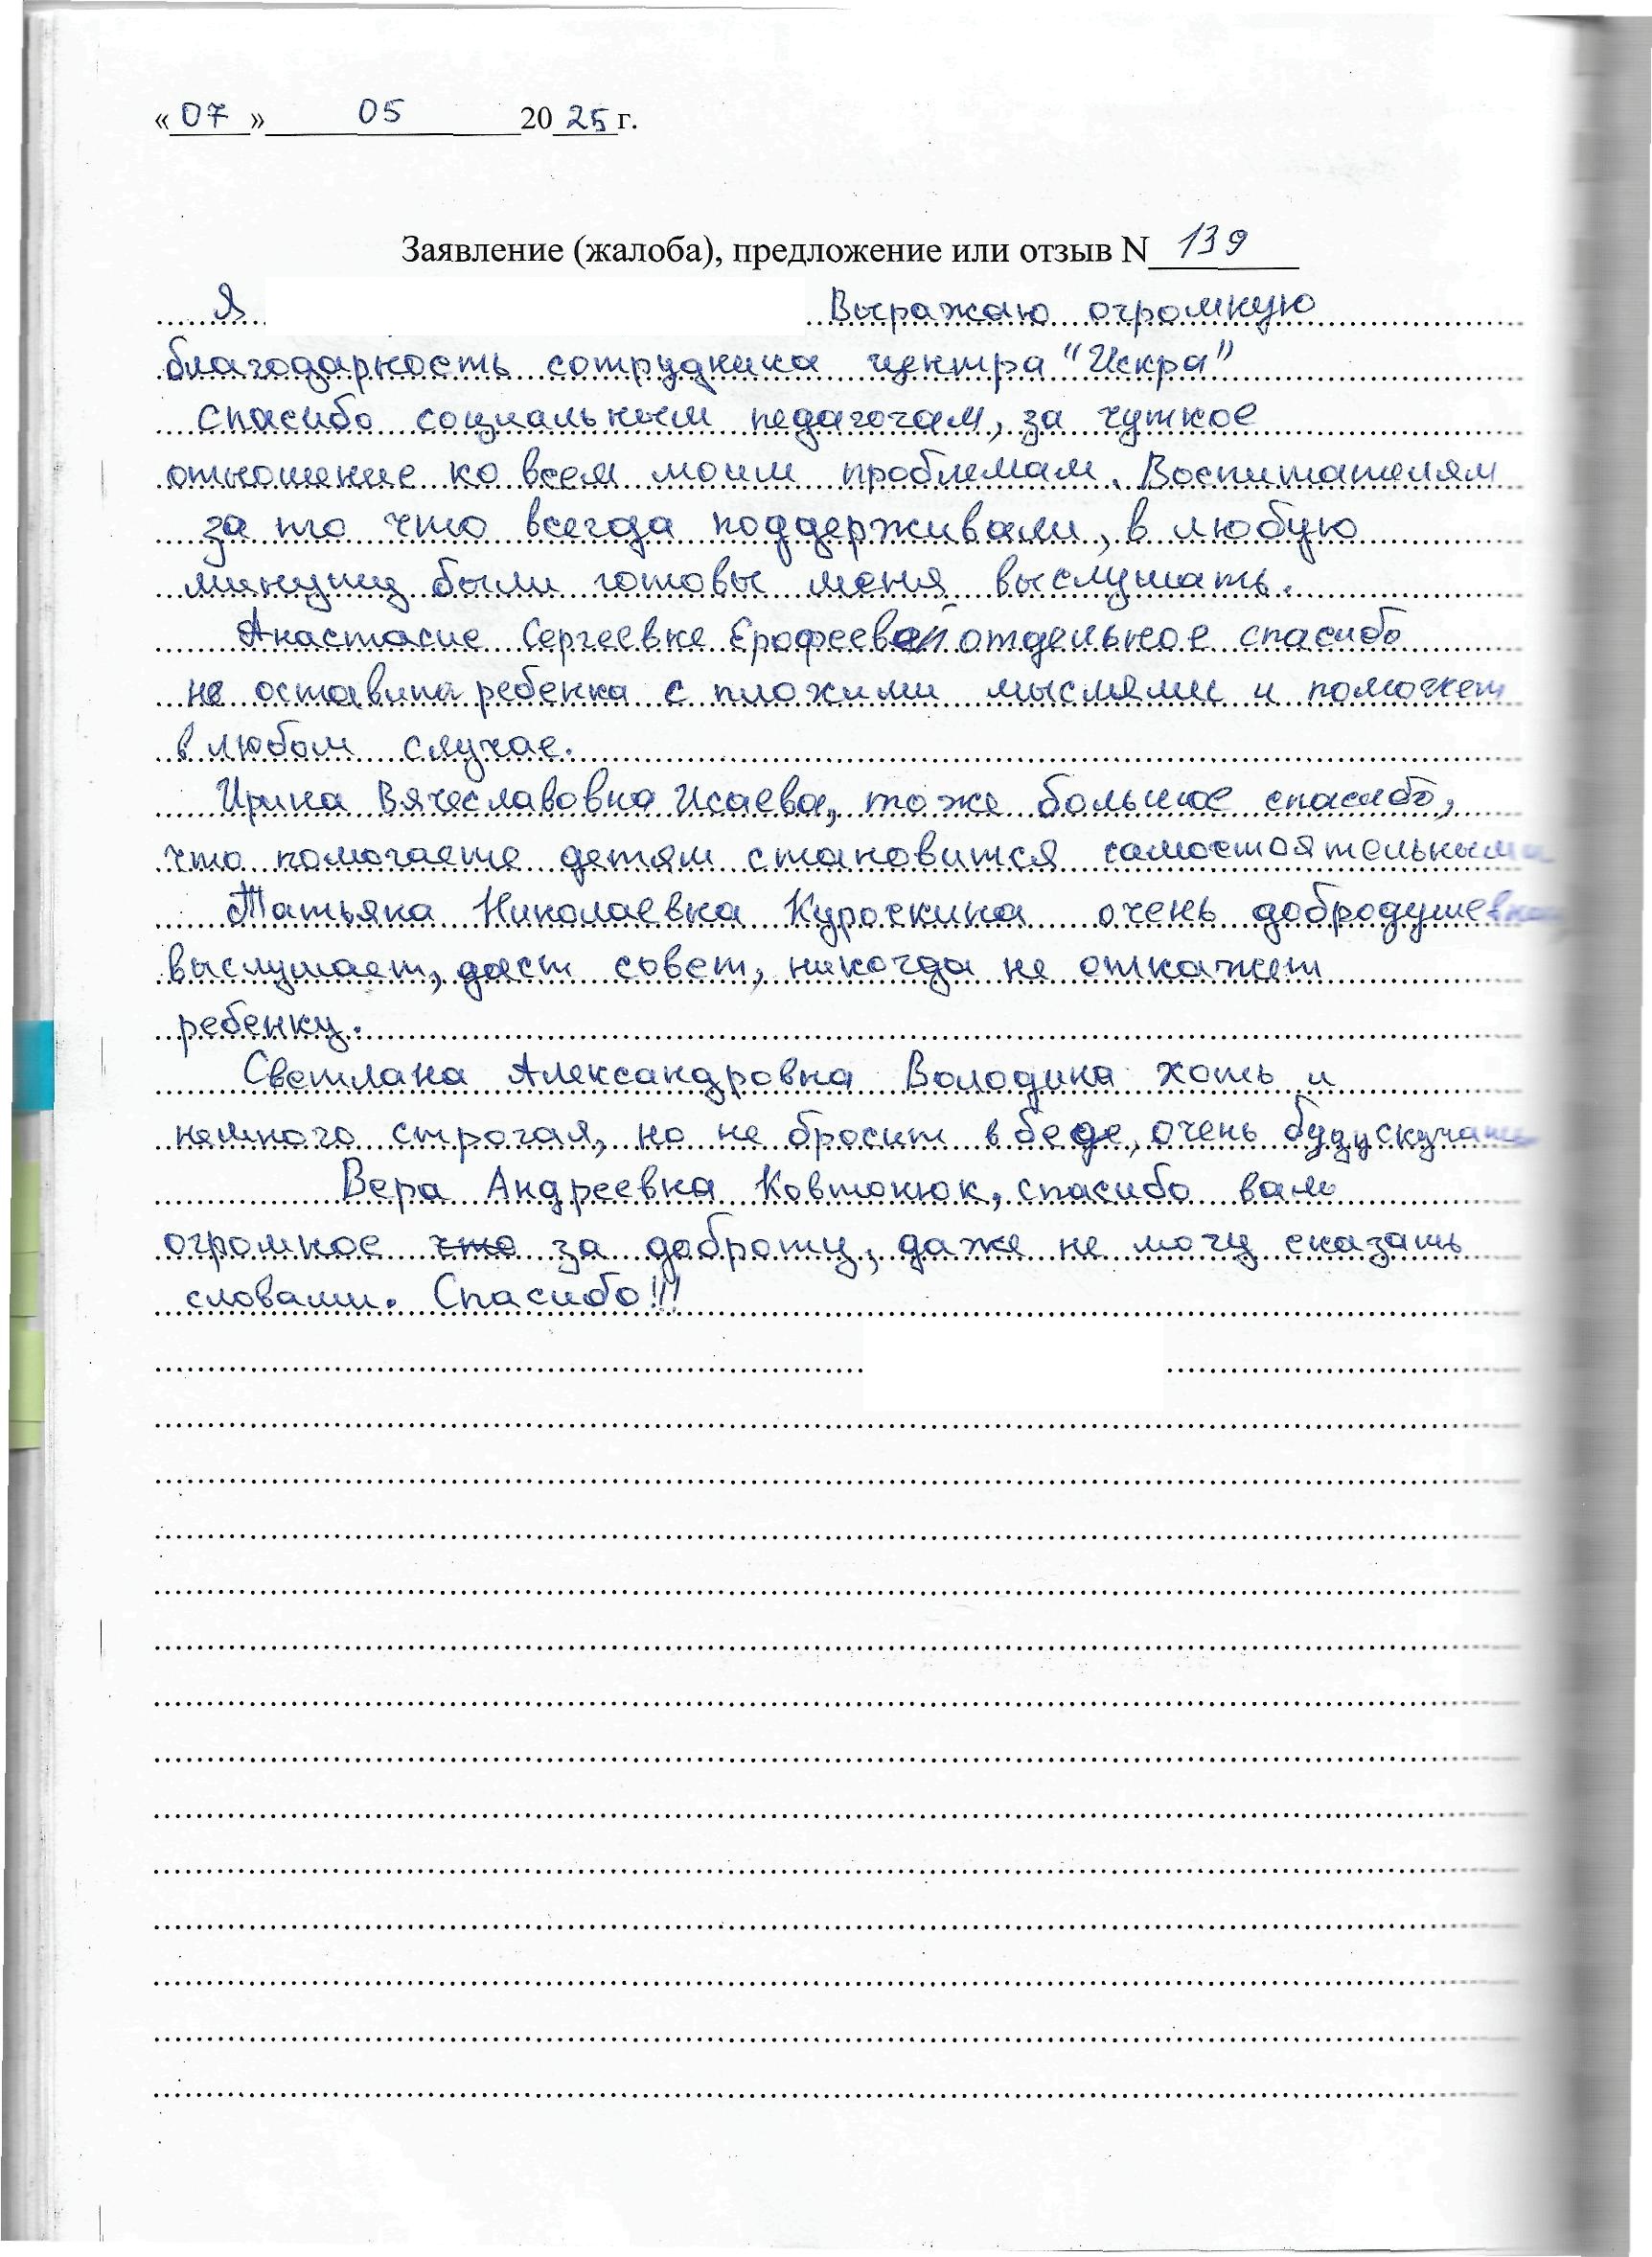 «07» 05 2025 г.
Заявление (жалоба), предложение или отзыв N 139
Я Выражаю огромную
благодарность сотрудника центра "Искра"
спасибо социальным педагогам, за чуткое
отношение ко всем моим проблемам. Воспитателям
за то что всегда поддерживали, в любую
минуту были готовы меня выслушать.
Анастасие Сергеевне Ерофеевой отдельное спасибо
не оставила ребенка с плохими мыслями и поможет
в любом случае.
Ирина Вячеславовна Исаева, тоже большое спасибо,
что помогаете детям становится самостоятельными
Татьяна Николаевна Курочкина очень добродушевная
выслушает, даст совет, никогда не откажет
ребенку.
Светлана Александровна Володина хоть и
немного строгая, но не бросит в беде, очень буду скучать
Вера Андреевна Ковтонюк, спасибо вам
огромное что за доброту, даже не могу сказать
словами. Спасибо!!!